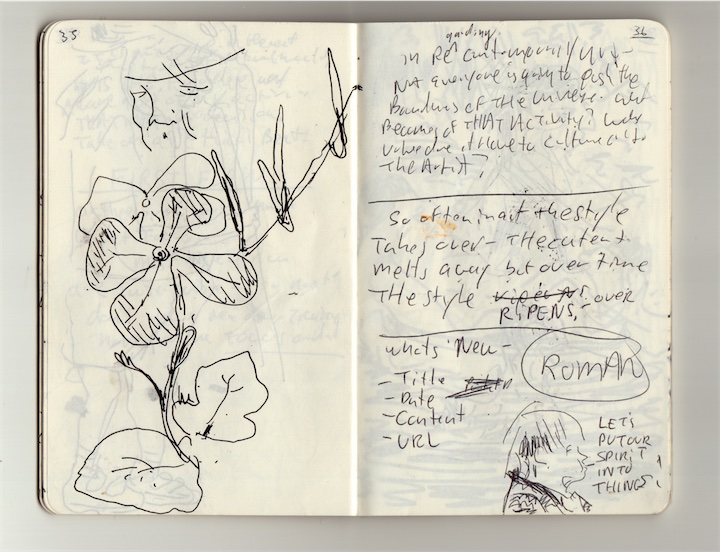 35
36
garding
in Re contemporary
Not everyone is going to push the
Boundries of the universe. what
Becomes of THAT ACTIVITY? what
value does it Have to culture or to
The Artist?
So often in art the style
Takes over - THE content
melts away but over time
THe style over
RIPENS,-
whats New -
ROMAN
- Title
- Date
- Content
- URL
LET'S
PUT OUR
SPIRIT
INTO
THINGS!